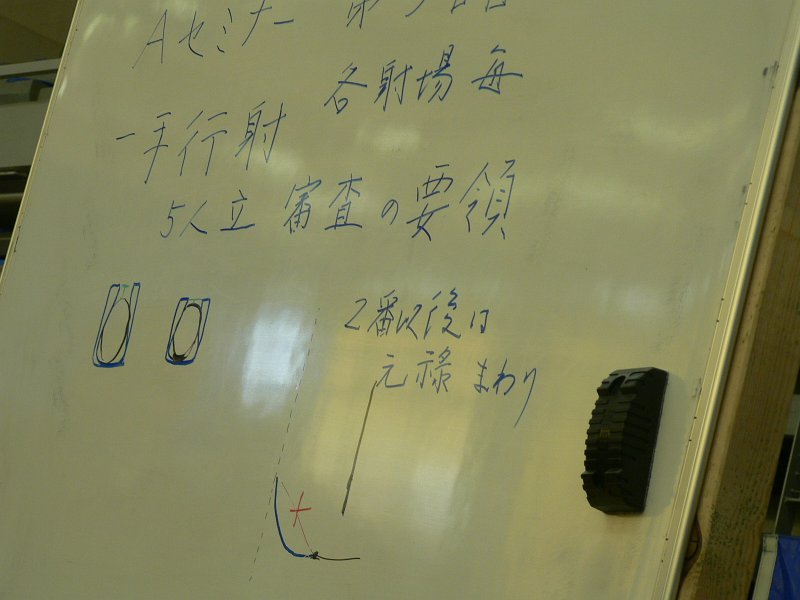 Aセミナー 第5日目
各射場毎
一手行射
5人立 審査の要領
2番以後は
元禄まわり